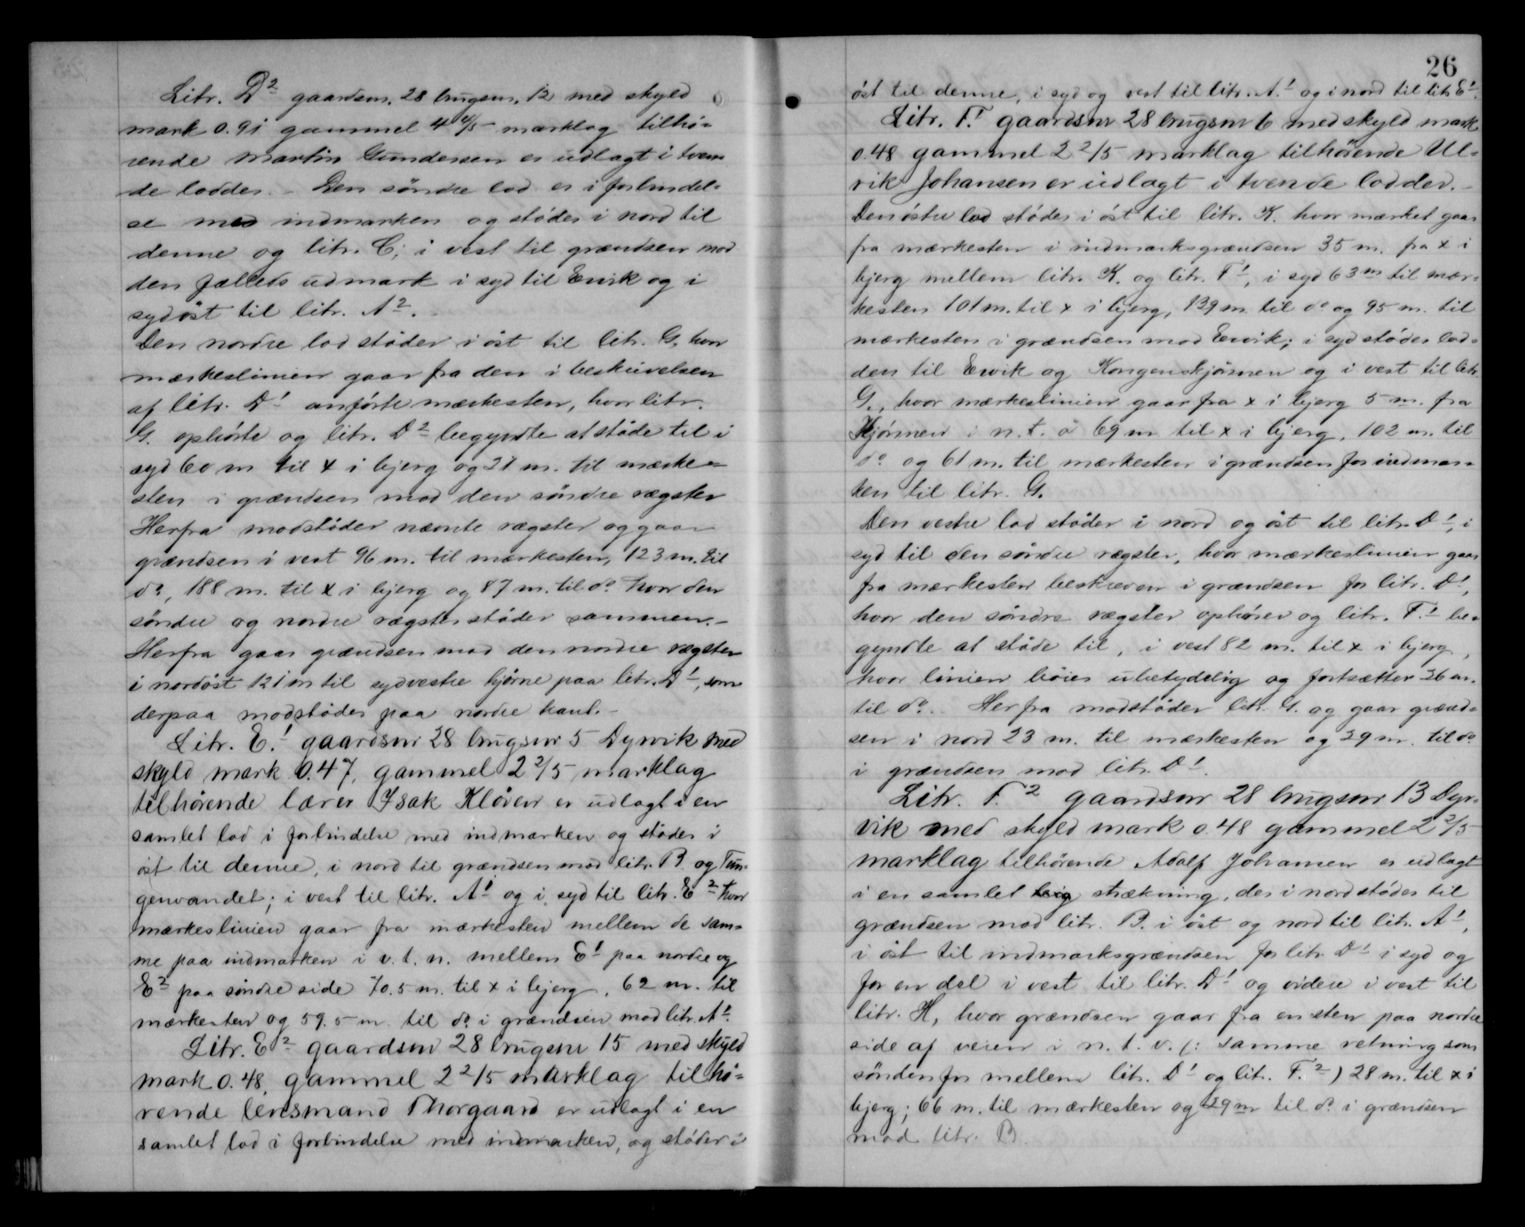 Litr. D² gaardsn. 28 brugsn. 12 med skyld
mark 0.91 gammel 4 4/5 marklag tilhø-
rende Martin Gundersen er udlagt i tven-
de lodder. - Den søndre lod er i forbindel-
se med indmarken og støder i nord til
denne og litr. C; i vest til grændsen mod
den fælleds udmark i syd til Ervik og i
sydøst til litr. A².
Den nordre lod støder i øst til litr. G. hvor
mærkeslinien gaar fra den i beskrivelsen
af litr. D¹ anførte mærkesten, hvor litr.
G. ophørte og litr. D² begyndte at støde til i
syd 60 m til x i bjerg og 27 m. til mærke-
sten i grændsen mod den søndre rægster
Herfra modstøder nævnte rægster og gaar
grændsen i vest 96 m. til mærkesten, 123 m. til
do, 188 m. til x i bjerg og 87 m. til do hvor den
søndre og nordre rægster støder sammen. -
Herfra gaar grændsen mod den nordre rægster
i nordøst 121 m til sydvestre hjørne paa litr. D¹, som
derpaa modstøder paa nordre kant. -
Litr. E.¹ gaardsnr 28 brugsnr 5 Dyrvik med
skyld mark 0.47, gammel 2 2/5 marklag
tilhørende lærer Isak Kløven er udlagt i en
samlet lod i forbindelse med indmarken og støder i
øst til denne, i nord til grændsen mod litr. B og Tun-
genvandet; i vest til litr. A¹ og i syd til litr. E² hvor
mærkeslinien gaar fra mærkesten mellem de sam-
me paa indmarken i v. t. n. mellem E¹ paa nordre og
E² paa søndre side 70.5 m. til x i bjerg, 62 m. til
mærkesten og 59.5 m. til do i grændsen mod litr. A¹.
Litr. E² gaardsnr 28 brugsnr 15 med skyld
mark 0.48, gammel 2 2/5 marklag tilhø-
rende lensmand Thorgaard er udlagt i en
samlet lod i forbindelse med indmarken, og støder i
26
øst til denne, i syd og vest til litr. A¹ og i nord til litr E¹.
Litr. F.¹ gaardsnr 28 brugsnr 6 med skyld mark
0.48 gammel 2 2/5 marklag tilhørende Ul-
rik Johansen er udlagt i tvende lodder. -
Den østre lod støder i øst til litr. K. hvor mærket gaar
fra mærkesten i indmarksgrændsen 35 m. fra x i
bjerg mellem litr. K. og litr. F¹, i syd 63 m til mær-
kesten 101 m. til x i bjerg, 139 m. til do og 95 m. til
mærkesten i grændsen mod Ervik; i syd støder lod-
den til Ervik og Kongenskjørnen og i vest til litr.
G., hvor mærkeslinien gaar fra x i bjerg 5 m. fra
Kjørnen i n. t. ø 69 m til x i bjerg, 102 m. til
do og 61 m. til mærkesten i grændsen for indmar-
ken til litr. G.
Den vestre lod støder i nord og øst til litr. D¹, i
syd til den søndre rægster, hvor mærkeslinien gaar
fra mærkesten beskreven i grændsen for litr. D¹,
hvor den søndre rægster ophører og litr. F.¹ be-
gyndte at støde til, i vest 82 m. til x i bjerg,
hvor linien bøier ubetydelig og fortsætter 26 m.
til do. Herfra modstøder litr. G. og gaar grænd-
sen i nord 23 m. til mærkesten og 29 m. til do
i grændsen mod litr. D¹.
Litr. F.² gaardsnr 28 brugsnr 13 Dyr-
vik med skyld mark 0.48 gammel 2 2/5
marklag tilhørende Adolf Johansen er udlagt
i en samlet strækning, der i nord støder til
grændsen mod litr. B. i øst og nord til litr. A¹,
i øst til indmarksgrændsen for litr D¹ i syd og
for en del i vest til litr. D¹ og videre i vest til
litr. H, hvor grændsen gaar fra en sten paa nordre
side af veien i n. t. v. (: samme retning som
søndenfor mellem litr. D¹ og litr. F.²) 28 m. til x i
bjerg; 66 m. til mærkesten og 29 m til do i grændsen
mod litr. B.